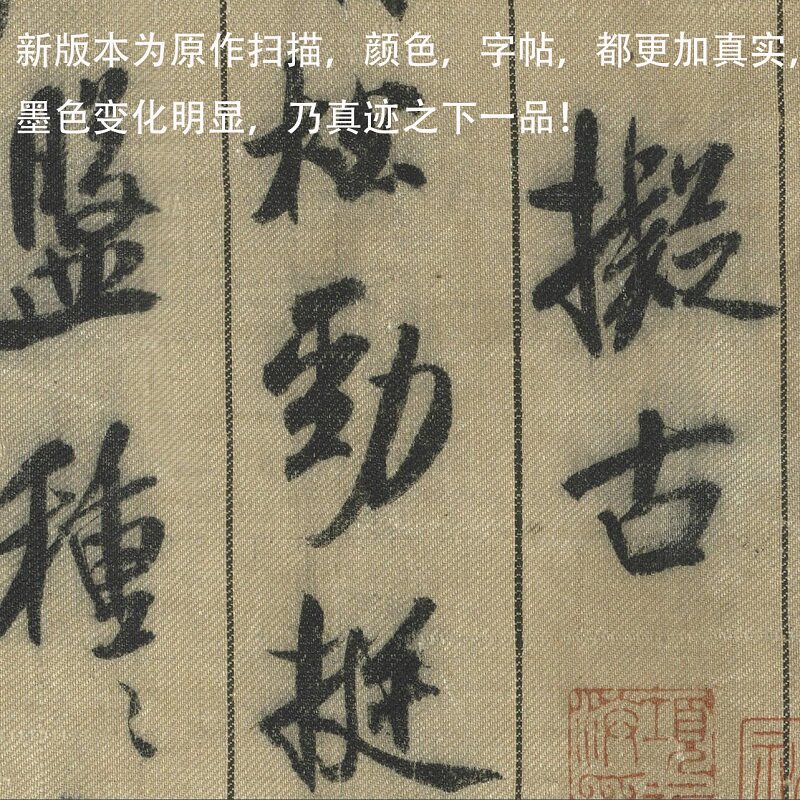 新版本为原作扫描，颜色，字帖，都更加真实，
墨色变化明显，乃真迹之下一品！
擬古
松勁挺
盤種〻